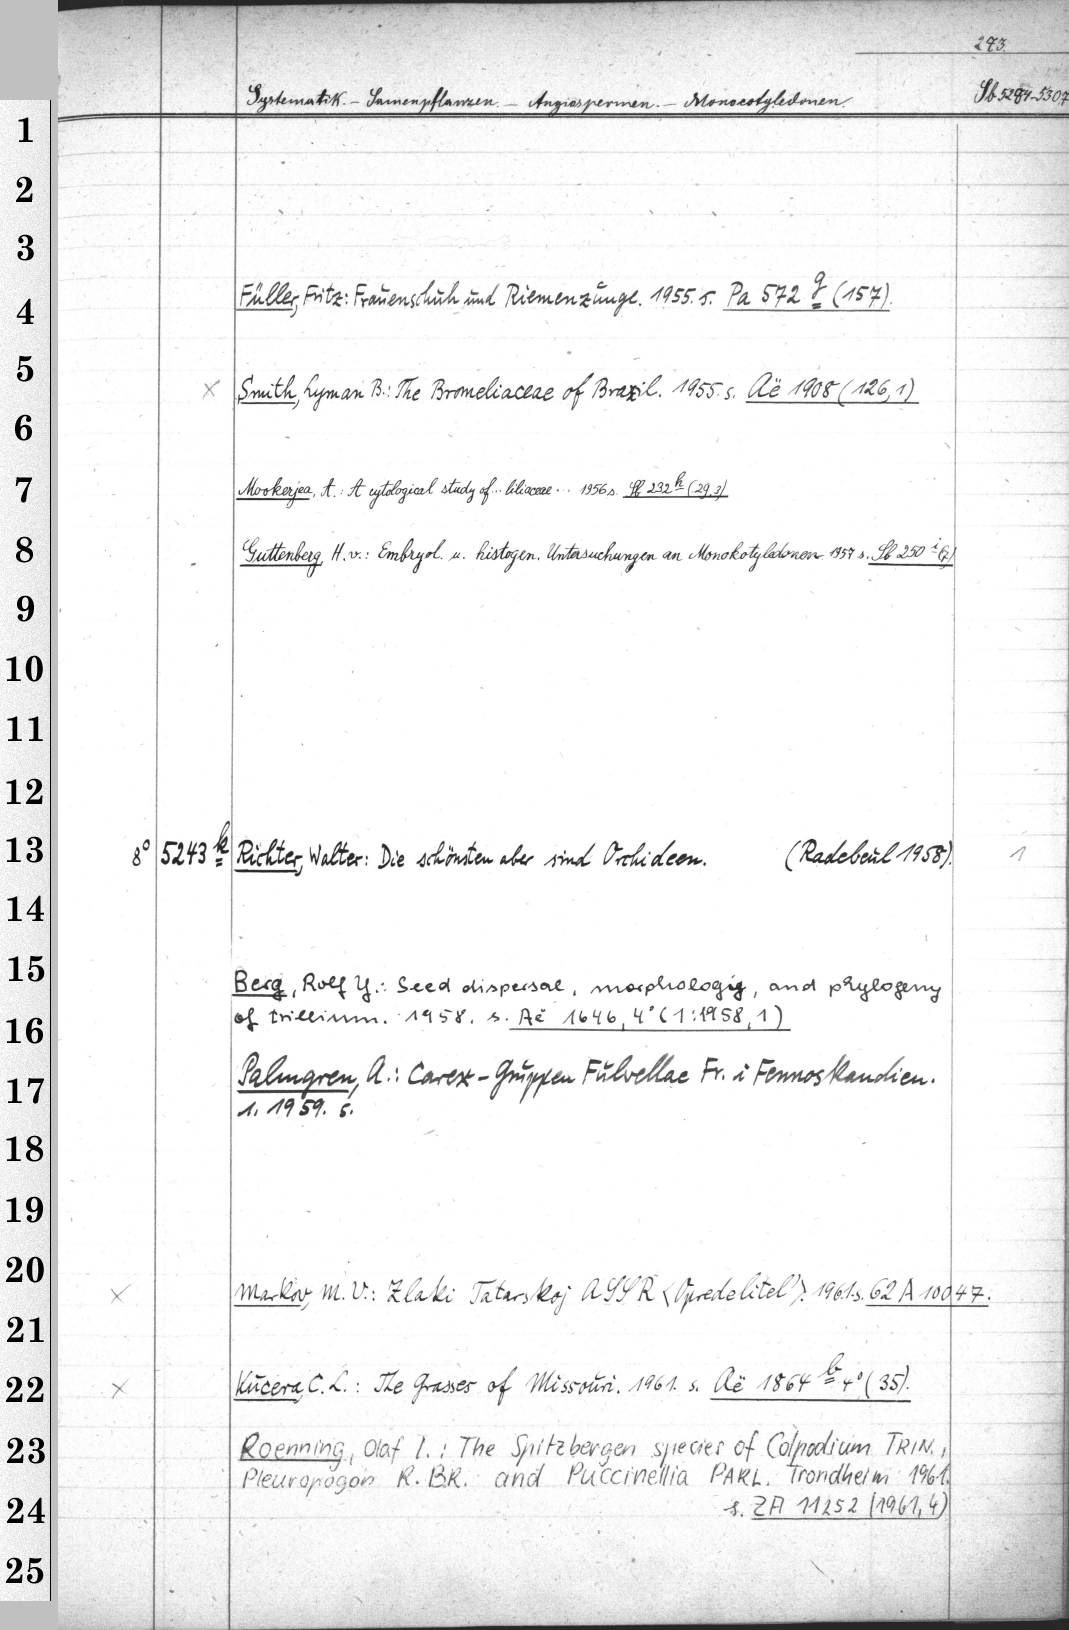 293.
Systematik. – Samenpflanzen. – Angiospermen. – Monocotyledonen.
Sb 5284-5307
1
2
3
Füller, Fritz: Frauenschuh und Riemenzunge. 1955. s. Pa 572 g (157).
4
5
× Smith, Lyman B.: The Bromeliaceae of Brazil. 1955. s. Aë 1908 (126,1)
6
7 Mookerjea, A.: A cytological study of... liliaceae... 1956 s. Sb 232 h (29,3)
8 Guttenberg, H. v.: Embryol. u. histogen. Untersuchungen an Monokotyledonen 1957 s. Sb 250 i
9
10
11
12
13 8° 5243 k Richter, Walter: Die schönsten aber sind Orchideen. (Radebeul 1958). 1
14
15 Berg, Rolf Y.: Seed dispersal, morphology, and phylogeny
16 of trillium. 1958. s. Aë 1646, 4° (1:1958,1)
17 Palmgren, A.: Carex-Gruppen Fulvellae Fr. i Fennoskandien.
1. 1959. s.
18
19
20
× Markov, M. V.: Zlaki Tatarskoj ASSR <Opredelitel'>. 1961. s. 62 A 10047.
21
22 × Kucera, C. L.: The Grasses of Missouri. 1961. s. Aë 1864 b 4° (35).
23 Roenning, Olaf I.: The Spitzbergen species of Colpodium TRIN.,
Pleuropogon R.BR. and Puccinellia PARL. Trondheim 1961.
24 s. ZA 11252 (1961,4)
25